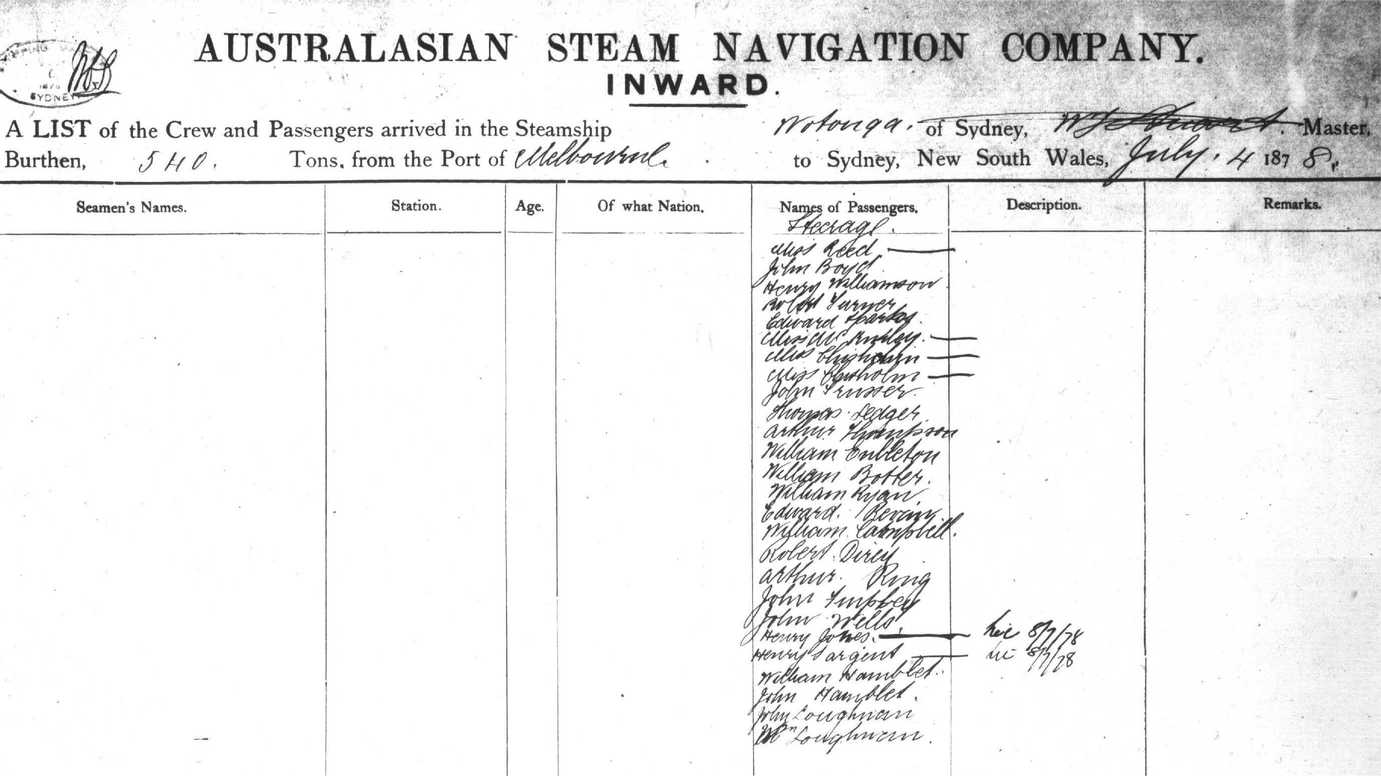 AUSTRALASIAN STEAM NAVIGATION COMPANY.
INWARD.
SYDNEY
A LIST of the Crew and Passengers arrived in the Steamship Wotonga. of Sydney, Master,
Burthen, 540. Tons, from the Port of Melbourne. to Sydney, New South Wales, July. 4 1878.
Seamen's Names. Station. Age. Of what Nation. Names of Passengers. Description. Remarks.
Steerage.
Miss Reed
John Boyd
Henry Williamson
Robt Turner
Edward
Miss
Miss
Miss Chisholm
John
Thomas Ledger
Arthur Thompson
William Embleton
William Botter.
William Ryan
Edward. Bevan
William Campbell.
Robert
Arthur. Ring
John
John Wells
Henry Jones. 8/7/78
Henry Sargent 8/7/78
William Hamblet.
John Hamblet.
John Loughnan
Loughnan.